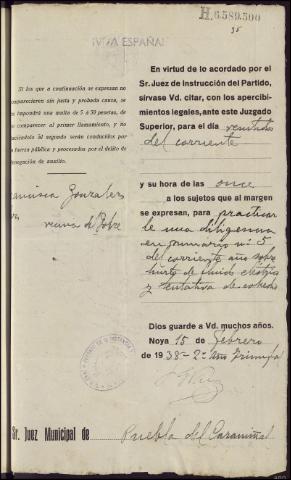 H.6589.500
35
¡VIVA ESPAÑA!
Si los que a continuación se expresan no
comparecieren sin justa y probada causa, se
impondrá una multa de 5 a 50 pesetas, de
no comparecer al primer llamamiento, y no
haciéndolo al segundo serán conducidos por
la fuerza pública y procesados por el delito de
denegación de auxilio.
Francisca González
vecina de
En virtud de lo acordado por el
Sr. Juez de Instrucción del Partido,
sírvase Vd. citar, con los apercibi-
mientos legales, ante este Juzgado
Superior, para el día veintidos
del corriente
y su hora de las once
a los sujetos que al margen
se expresan, para practicar
le una diligencia
en sumario nº 5
de corriente año sobre
hurto de fluido electrico
y tentativa de cohecho
Dios guarde a Vd. muchos años.
Noya 15 de Febrero
de 1938-2º Año Triunfal
Sr. Juez Municipal de Puebla del Caramiñal